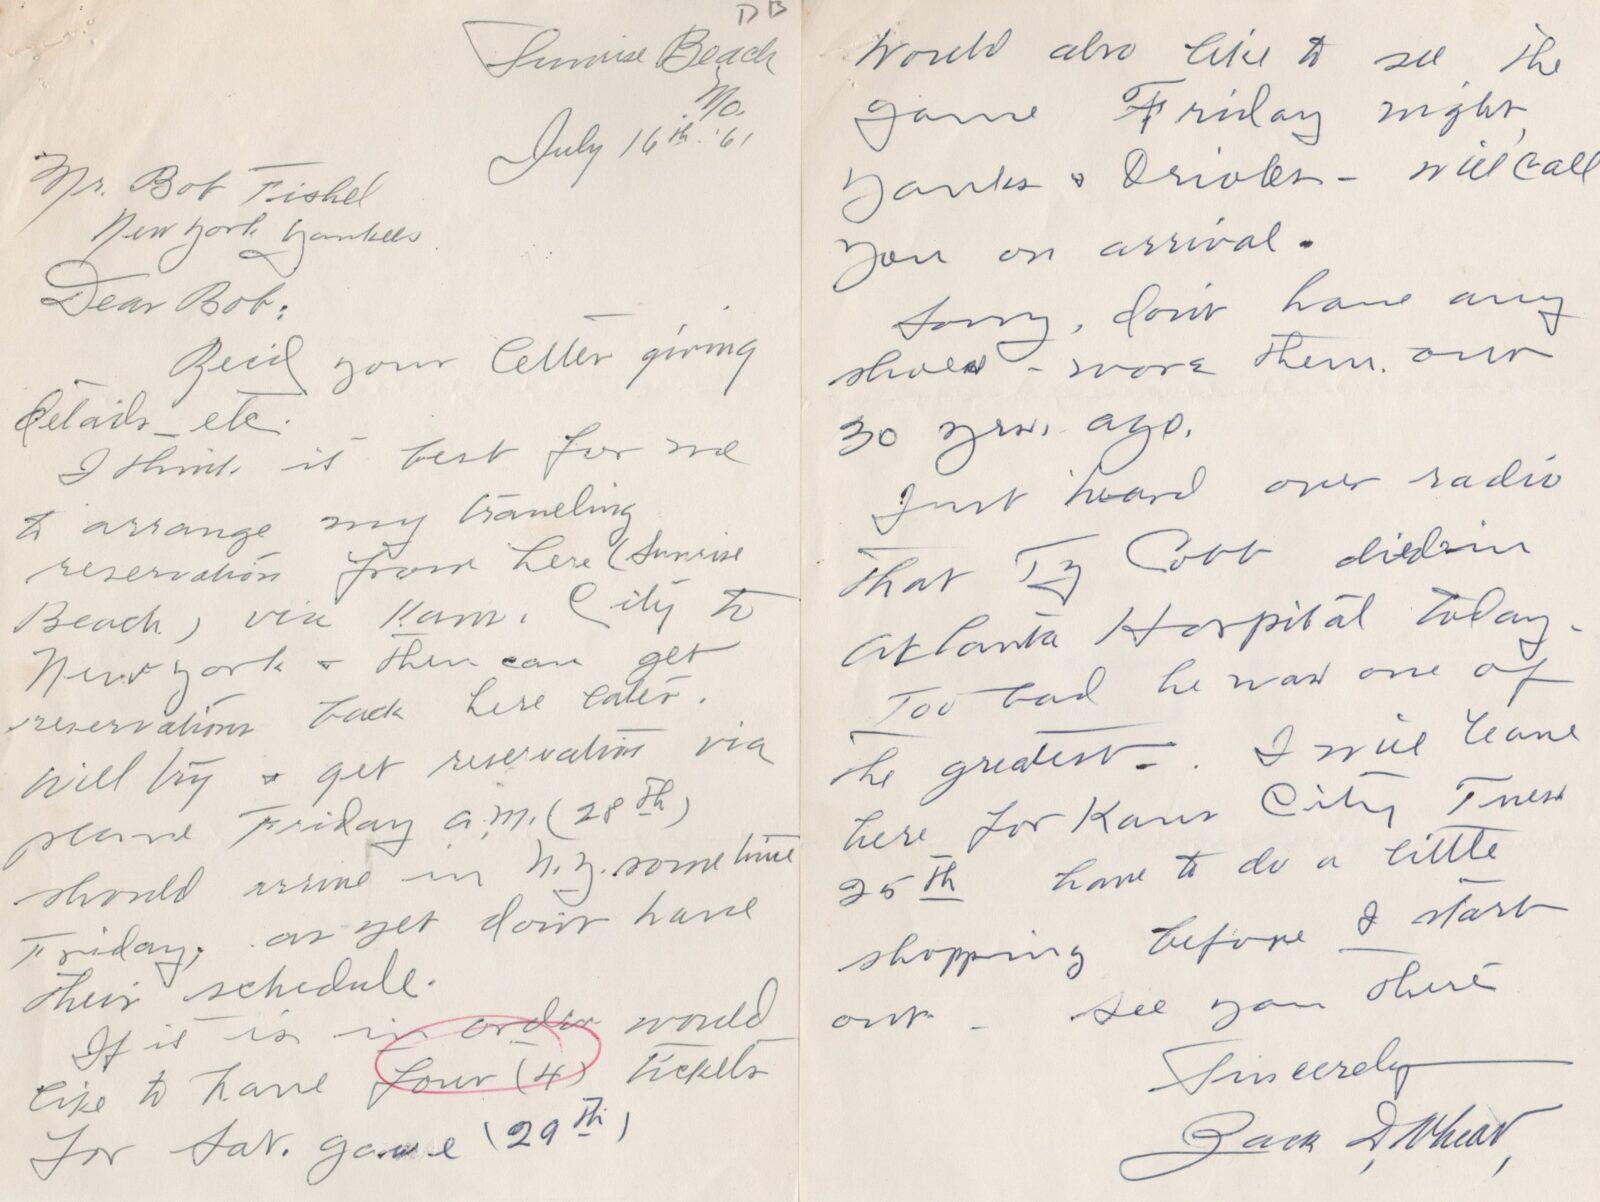 DB
Sunrise Beach
Mo.
July 16th '61
Mr. Bob Fishel
New York Yankees
Dear Bob:
Rec'd your letter giving
details etc.
I think it best for me
to arrange my traveling
reservation from here (Sunrise
Beach) via Kans. City to
New York & then can get
reservations back here later.
Will try & get reservation via
plane Friday a.m. (28th)
should arrive in N.Y. sometime
Friday, as yet don't have
their schedule.
If it is in order would
like to have four (4) tickets
for Sat. game (29th)
Would also like to see the
game Friday night,
Yanks & Orioles - will call
you on arrival.
Sorry, don't have any
shoes - wore them out
30 yrs. ago.
Just heard over radio
that Ty Cobb died in
Atlanta Hospital today.
Too bad he was one of
the greatest -. I will leave
here for Kans City Tues
25th have to do a little
shopping before I start
out - see you there
Sincerely
Zack D. Wheat,